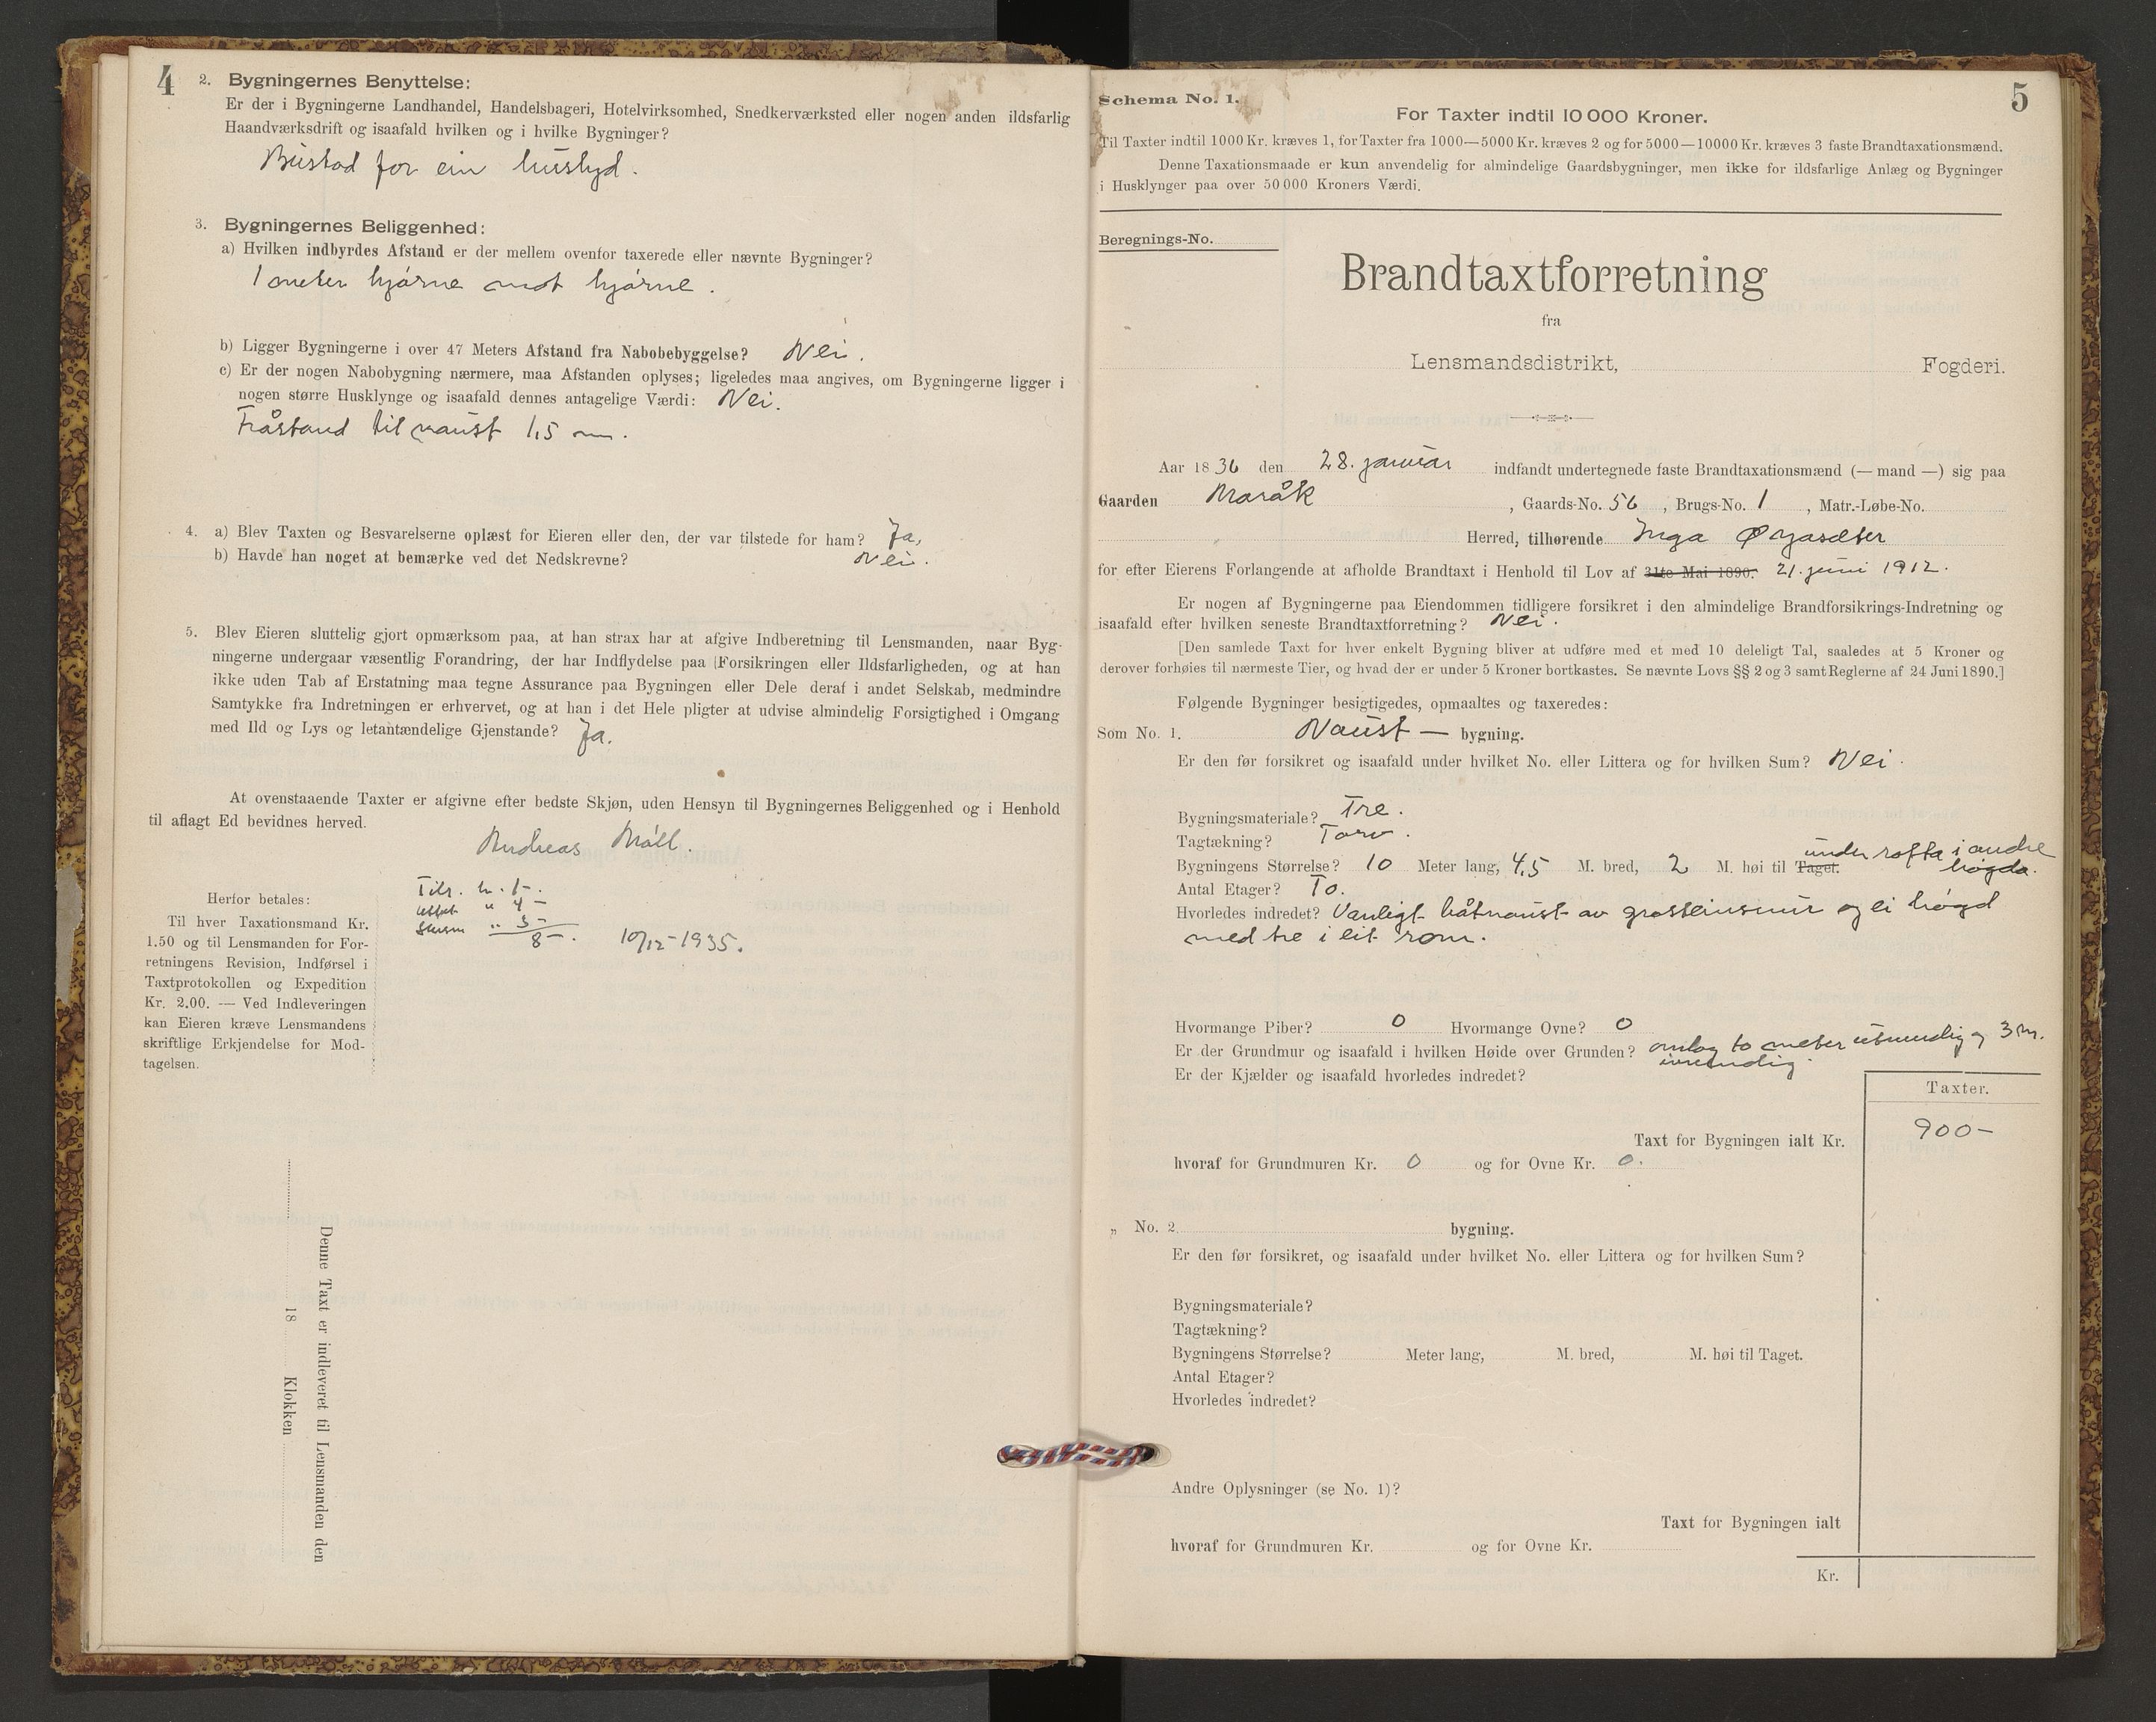 4
2. Bygningernes Benyttelse:
Er der i Bygningerne Landhandel, Handelsbageri, Hotelvirksomhed, Snedkerværksted eller nogen anden ildsfarlig
Haandværksdrift og isaafald hvilken og i hvilke Bygninger?
Bustad for ein huslyd.
3. Bygningernes Beliggenhed:
a) Hvilken indbyrdes Afstand er der mellem ovenfor taxerede eller nævnte Bygninger?
1 meter hjørne mot hjørne.
b) Ligger Bygningerne i over 47 Meters Afstand fra Nabobebyggelse? Nei.
c) Er der nogen Nabobygning nærmere, maa Afstanden oplyses; ligeledes maa angives, om Bygningerne ligger i
nogen større Husklynge og isaafald dennes antagelige Værdi: Nei.
Fråstand til naust 1,5 m.
4. a) Blev Taxten og Besvarelserne oplæst for Eieren eller den, der var tilstede for ham? Ja,
b) Havde han noget at bemærke ved det Nedskrevne? Nei.
5. Blev Eieren sluttelig gjort opmærksom paa, at han strax har at afgive Indberetning til Lensmanden, naar Byg-
ningerne undergaar væsentlig Forandring, der har Indflydelse paa Forsikringen eller Ildsfarligheden, og at han
ikke uden Tab af Erstatning maa tegne Assurance paa Bygningen eller Dele deraf i andet Selskab, medmindre
Samtykke fra Indretningen er erhvervet, og at han i det Hele pligter at udvise almindelig Forsigtighed i Omgang
med Ild og Lys og letantændelige Gjenstande? Ja.
At ovenstaaende Taxter er afgivne efter bedste Skjøn, uden Hensyn til Bygningernes Beliggenhed og i Henhold
til aflagt Ed bevidnes herved.
Andreas Moll.
Herfor betales:
Til hver Taxationsmand Kr.
1.50 og til Lensmanden for For-
retningens Revision, Indførsel i
Taxtprotokollen og Expedition
Kr. 2.00. — Ved Indleveringen
kan Eieren kræve Lensmandens
skriftlige Erkjendelse for Mod-
tagelsen.
1-.
" 4-
" 3-
8-. 10/12-1935.
Denne Taxt er indleveret til Lensmanden den
18 Klokken
5
Schema No. 1.
For Taxter indtil 10 000 Kroner.
Til Taxter indtil 1000 Kr. kræves 1, for Taxter fra 1000—5000 Kr. kræves 2 og for 5000—10000 Kr. kræves 3 faste Brandtaxationsmænd.
Denne Taxationsmaade er kun anvendelig for almindelige Gaardsbygninger, men ikke for ildsfarlige Anlæg og Bygninger
i Husklynger paa over 50 000 Kroners Værdi.
Beregnings-No.
Brandtaxtforretning
fra
Lensmandsdistrikt, Fogderi.
Aar 18 36 den 28. januar indfandt undertegnede faste Brandtaxationsmænd (— mand —) sig paa
Gaarden Maråk, Gaards-No. 56, Brugs-No. 1, Matr.-Løbe-No.
Herred, tilhørende Inga Øyasæter
for efter Eierens Forlangende at afholde Brandtaxt i Henhold til Lov af 31te Mai 1890. 21. juni 1912.
Er nogen af Bygningerne paa Eiendommen tidligere forsikret i den almindelige Brandforsikrings-Indretning og
isaafald efter hvilken seneste Brandtaxtforretning? Nei.
[Den samlede Taxt for hver enkelt Bygning bliver at udføre med et med 10 deleligt Tal, saaledes at 5 Kroner og
derover forhøies til nærmeste Tier, og hvad der er under 5 Kroner bortkastes. Se nævnte Lovs §§ 2 og 3 samt Reglerne af 24 Juni 1890.]
Følgende Bygninger besigtigedes, opmaaltes og taxeredes:
Som No. 1. Naust — bygning.
Er den før forsikret og isaafald under hvilket No. eller Littera og for hvilken Sum? Nei.
Bygningsmateriale? Tre.
Tagtækning? Torv.
Bygningens Størrelse? 10 Meter lang, 4,5 M. bred, 2 M. høi til Taget. under rofta i andre
høgda.
Antal Etager? To.
Hvorledes indredet? Vanligt båtnaust av grasteinsmur og ei høgd
med tre i eit rom.
Hvormange Piber? 0 Hvormange Ovne? 0
Er der Grundmur og isaafald i hvilken Høide over Grunden? omlag to meter utvendig og 3 m.
innvendig.
Er der Kjælder og isaafald hvorledes indredet?
Taxter.
Taxt for Bygningen ialt Kr. 900-
hvoraf for Grundmuren Kr. 0 og for Ovne Kr. 0.
„ No. 2. bygning.
Er den før forsikret, og isaafald under hvilket No. eller Littera og for hvilken Sum?
Bygningsmateriale?
Tagtækning?
Bygningens Størrelse? Meter lang, M. bred, M. høi til Taget.
Antal Etager?
Hvorledes indredet?
Andre Oplysninger (se No. 1)?
Taxt for Bygningen ialt
hvoraf for Grundmuren Kr. og for Ovne Kr.
Kr.